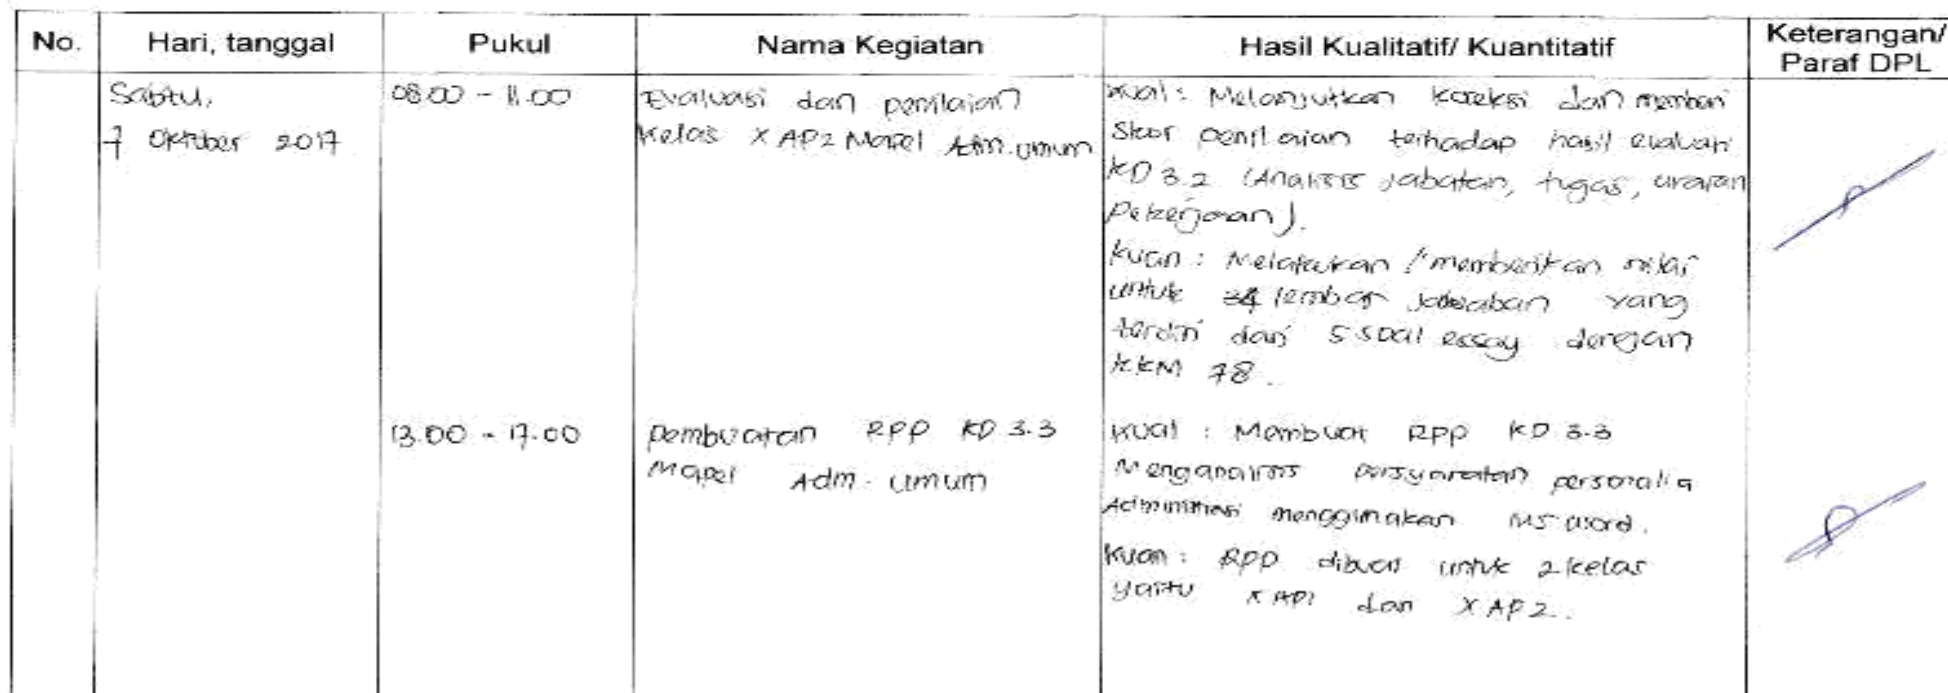 No. Hari, tanggal Pukul Nama Kegiatan Hasil Kualitatif/ Kuantitatif Keterangan/ Paraf DPL
Sabtu,
7 Oktober 2017
08.00 - 11.00
Evaluasi dan penilaian
Kelas X AP2 Mapel Adm. Umum
Kual : Melanjutkan koreksi dan memberi
Skor penilaian terhadap hasil evaluasi
KD 3.2 (Analisis Jabatan, tugas, uraian
Pekerjaan).
Kuan : Melakukan / memberikan nilai
untuk 34 lembar jawaban yang
terdiri dari 5 soal essay dengan
KKM 78.
13.00 - 17.00
Pembuatan RPP KD 3.3
Mapel Adm. Umum
Kual : Membuat RPP KD 3.3
Menganalisis persyaratan personalia
Administrasi menggunakan Ms. Word.
Kuan : RPP dibuat untuk 2 kelas
yaitu X AP1 dan X AP2.